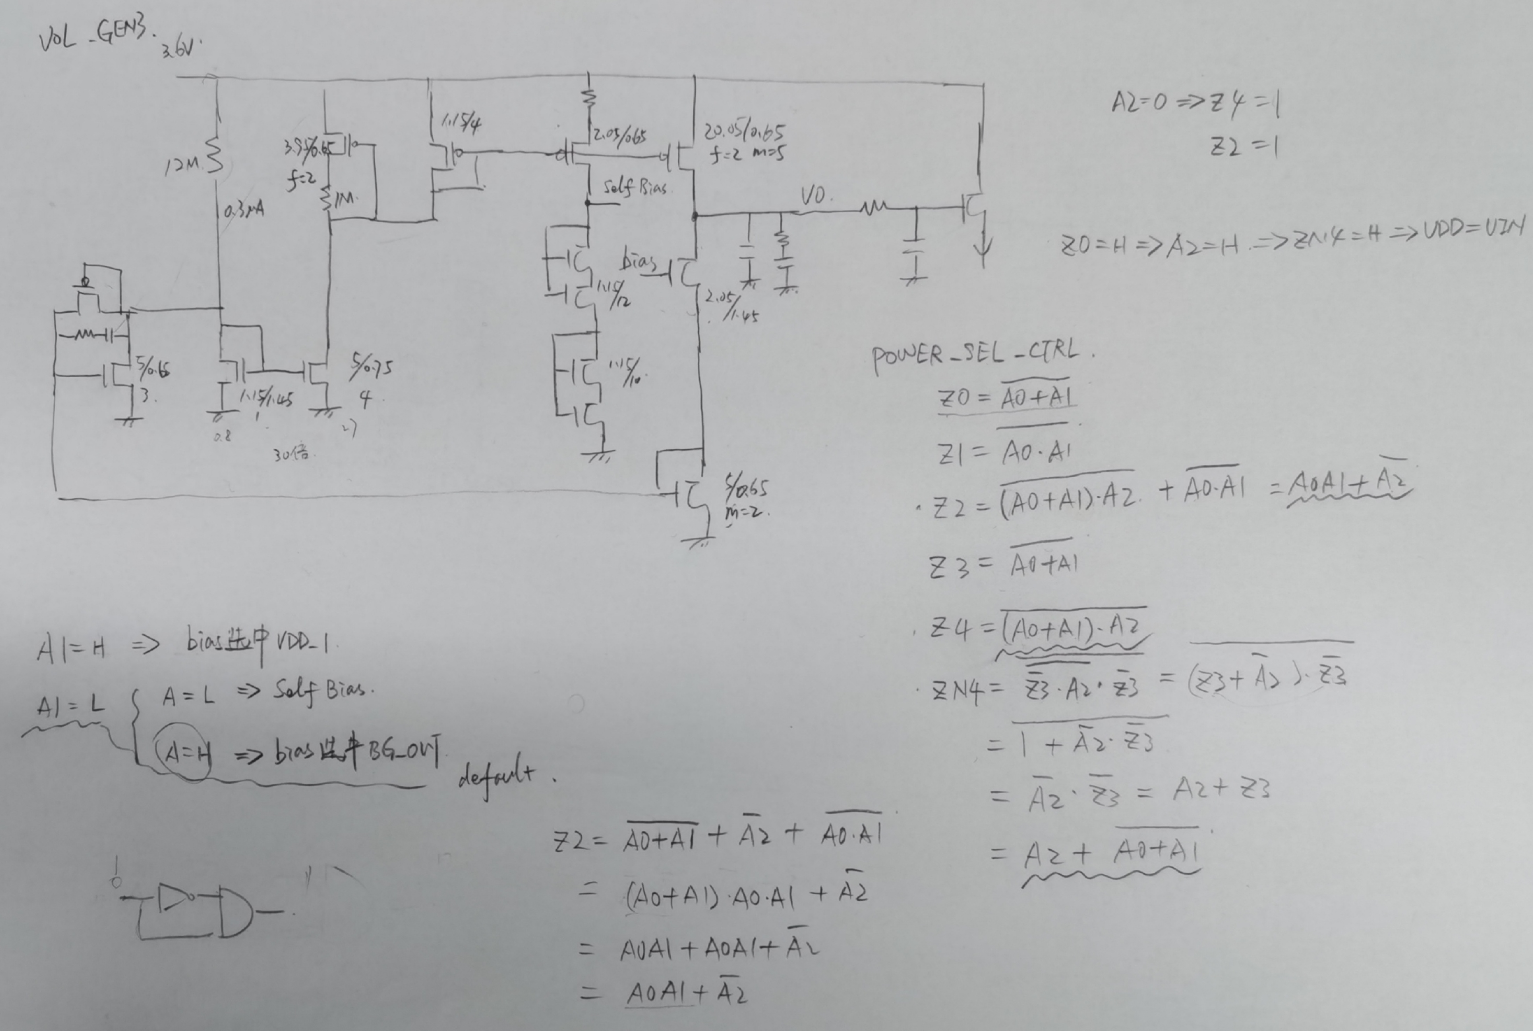 VOL_GEN3.
3.6V.
12M
0.3μA
f=2
1M
1.15/4
2.05/0.65
20.05/0.65
f=2 m=5
Self Bias
VO.
bias
1.15/12
2.05/1.45
5/0.65
3
1.15/1.45
1
0.8
30倍
5/0.75
4
27
1.15/10
5/0.65
m=2.
A2=0 ⇒ Z4=1
Z2=1
Z0=H ⇒ A2=H ⇒ ZN4=H ⇒ VDD=VIN
POWER_SEL_CTRL.
Z0 = \overline{A0+A1}
Z1 = \overline{A0·A1}
· Z2 = \overline{(A0+A1)·A2} + \overline{A0·A1} = A0A1+\overline{A2}
Z3 = \overline{A0+A1}
· Z4 = \overline{(A0+A1)·A2}
· ZN4 = \overline{\overline{\overline{Z3}·A2}·\overline{Z3}} = \overline{(Z3+\overline{A2})·\overline{Z3}}
= \overline{1+\overline{A2}·\overline{Z3}}
= \overline{A2}·\overline{Z3} = A2+Z3
= A2+\overline{A0+A1}
A1=H ⇒ bias选中VDD_1.
A1=L { A=L ⇒ Self Bias.
A=H ⇒ bias选中BG_OUT.
default.
Z2 = \overline{A0+A1} + \overline{A2} + \overline{A0·A1}
= (A0+A1)·A0·A1 + \overline{A2}
= A0A1+A0A1+\overline{A2}
= A0A1+\overline{A2}